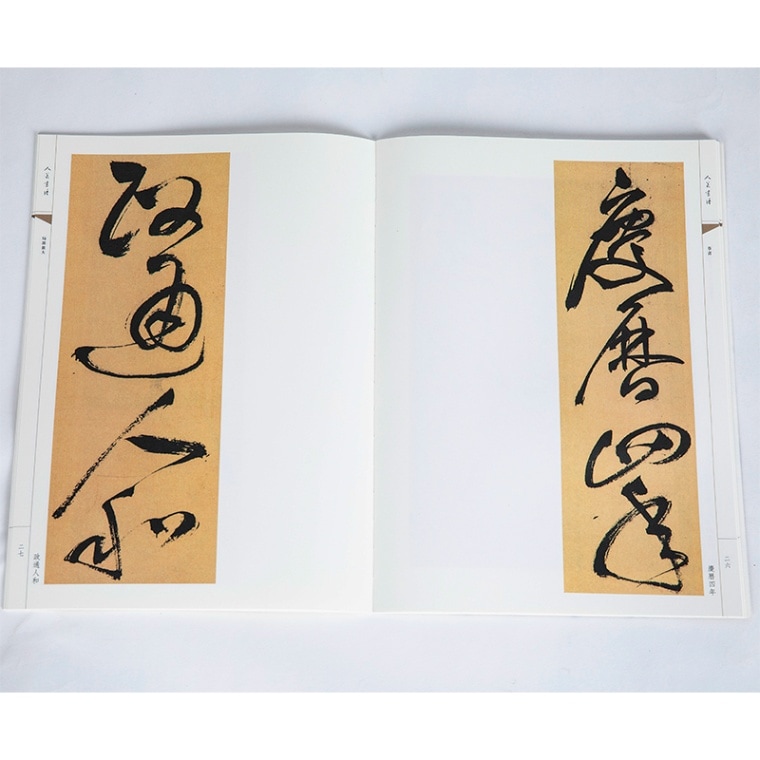 慶曆四年
政通人和
人美書譜
草書
慶曆四年
二六
人美書譜
政通人和
二七